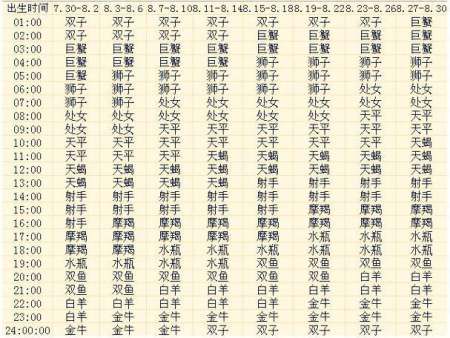 出生时间 7.30-8.2 8.3-8.6 8.7-8.10 8.11-8.14 8.15-8.18 8.19-8.22 8.23-8.26 8.27-8.30
01:00 双子 双子 双子 双子 双子 双子 双子 巨蟹
02:00 双子 双子 双子 双子 巨蟹 巨蟹 巨蟹 巨蟹
03:00 巨蟹 巨蟹 巨蟹 巨蟹 巨蟹 巨蟹 巨蟹 巨蟹
04:00 巨蟹 巨蟹 巨蟹 巨蟹 狮子 狮子 狮子 狮子
05:00 巨蟹 狮子 狮子 狮子 狮子 狮子 狮子 狮子
06:00 狮子 狮子 狮子 狮子 狮子 狮子 处女 处女
07:00 狮子 狮子 处女 处女 处女 处女 处女 处女
08:00 处女 处女 处女 处女 处女 处女 天平 天平
09:00 处女 处女 天平 天平 天平 天平 天平 天平
10:00 天平 天平 天平 天平 天平 天平 天平 天蝎
11:00 天平 天平 天平 天蝎 天蝎 天蝎 天蝎 天蝎
12:00 天蝎 天蝎 天蝎 天蝎 天蝎 天蝎 天蝎 天蝎
13:00 天蝎 天蝎 天蝎 天蝎 射手 射手 射手 射手
14:00 射手 射手 射手 射手 射手 射手 射手 射手
15:00 射手 射手 射手 射手 射手 摩羯 摩羯 摩羯
16:00 射手 摩羯 摩羯 摩羯 摩羯 摩羯 摩羯 摩羯
17:00 摩羯 摩羯 摩羯 摩羯 摩羯 水瓶 水瓶 水瓶
18:00 摩羯 摩羯 水瓶 水瓶 水瓶 水瓶 水瓶 水瓶
19:00 水瓶 水瓶 水瓶 水瓶 双鱼 双鱼 双鱼 双鱼
20:00 双鱼 双鱼 双鱼 双鱼 双鱼 双鱼 白羊 白羊
21:00 双鱼 双鱼 白羊 白羊 白羊 白羊 白羊 白羊
22:00 白羊 白羊 白羊 白羊 白羊 金牛 金牛 金牛
23:00 白羊 白羊 金牛 金牛 金牛 金牛 金牛 金牛
24:00:00 金牛 金牛 金牛 双子 双子 双子 双子 双子